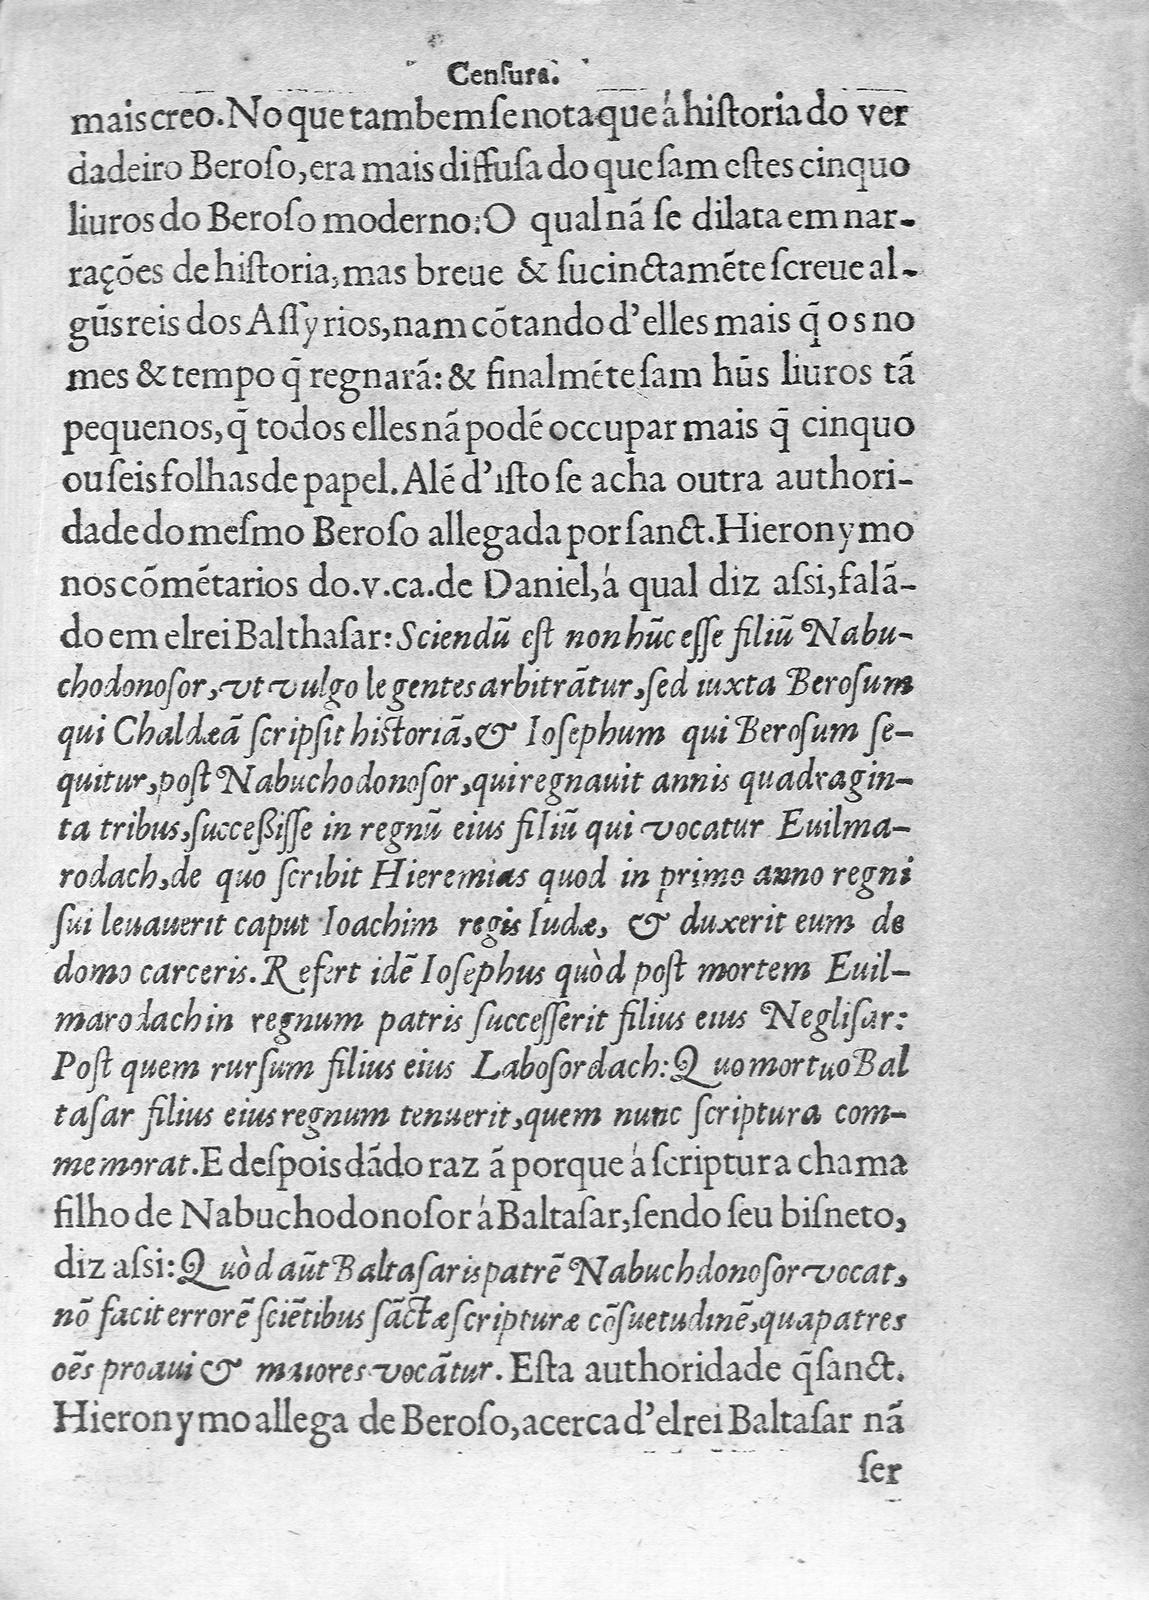 Cenſura.
mais creo. No que tambem ſe nota que á hiſtoria do ver
dadeiro Beroſo, era mais diffuſa do que ſam eſtes cinquo
liuros do Beroſo moderno: O qual nã ſe dilata em nar-
rações de hiſtoria, mas breue & ſucinctamẽte ſcreue al-
gũs reis dos Aſſyrios, nam cõtando d'elles mais q̃ os no
mes & tempo q̃ regnarã: & finalmẽte ſam hũs liuros tã
pequenos, q̃ todos elles nã podẽ occupar mais q̃ cinquo
ou ſeis folhas de papel. Alẽ d'iſto ſe acha outra authori-
dade do meſmo Beroſo allegada por ſanct. Hieronymo
nos cõmẽtarios do .v. ca. de Daniel, á qual diz aſsi, falã-
do em elrei Balthaſar: Sciendũ eſt non hũc eſſe filiũ Nabu-
chodonoſor, vt vulgo legentes arbitrãtur, ſed iuxta Beroſum
qui Chaldæã ſcripſit hiſtoriã, & Ioſephum qui Beroſum ſe-
quitur, poſt Nabuchodonoſor, qui regnauit annis quadragin-
ta tribus, ſucceßiſſe in regnũ eius filiũ qui vocatur Euilma-
rodach, de quo ſcribit Hieremias quod in primo anno regni
ſui leuauerit caput Ioachim regis Iudæ, & duxerit eum de
domo carceris. Refert idẽ Ioſephus quòd poſt mortem Euil-
marodach in regnum patris ſucceſſerit filius eius Negliſar:
Poſt quem rurſum filius eius Laboſordach: Quo mortuo Bal
taſar filius eius regnum tenuerit, quem nunc ſcriptura com-
memorat. E deſpois dãdo razã porque á ſcriptura chama
filho de Nabuchodonoſor á Baltaſar, ſendo ſeu biſneto,
diz aſsi: Quòd aũt Baltaſaris patrẽ Nabuchdonoſor vocat,
nõ facit errorẽ ſciẽtibus ſãctæ ſcripturæ cõſuetudinẽ, qua patres
oẽs proaui & maiores vocãtur. Eſta authoridade q̃ ſanct.
Hieronymo allega de Beroſo, acerca d'elrei Baltaſar nã
ſer